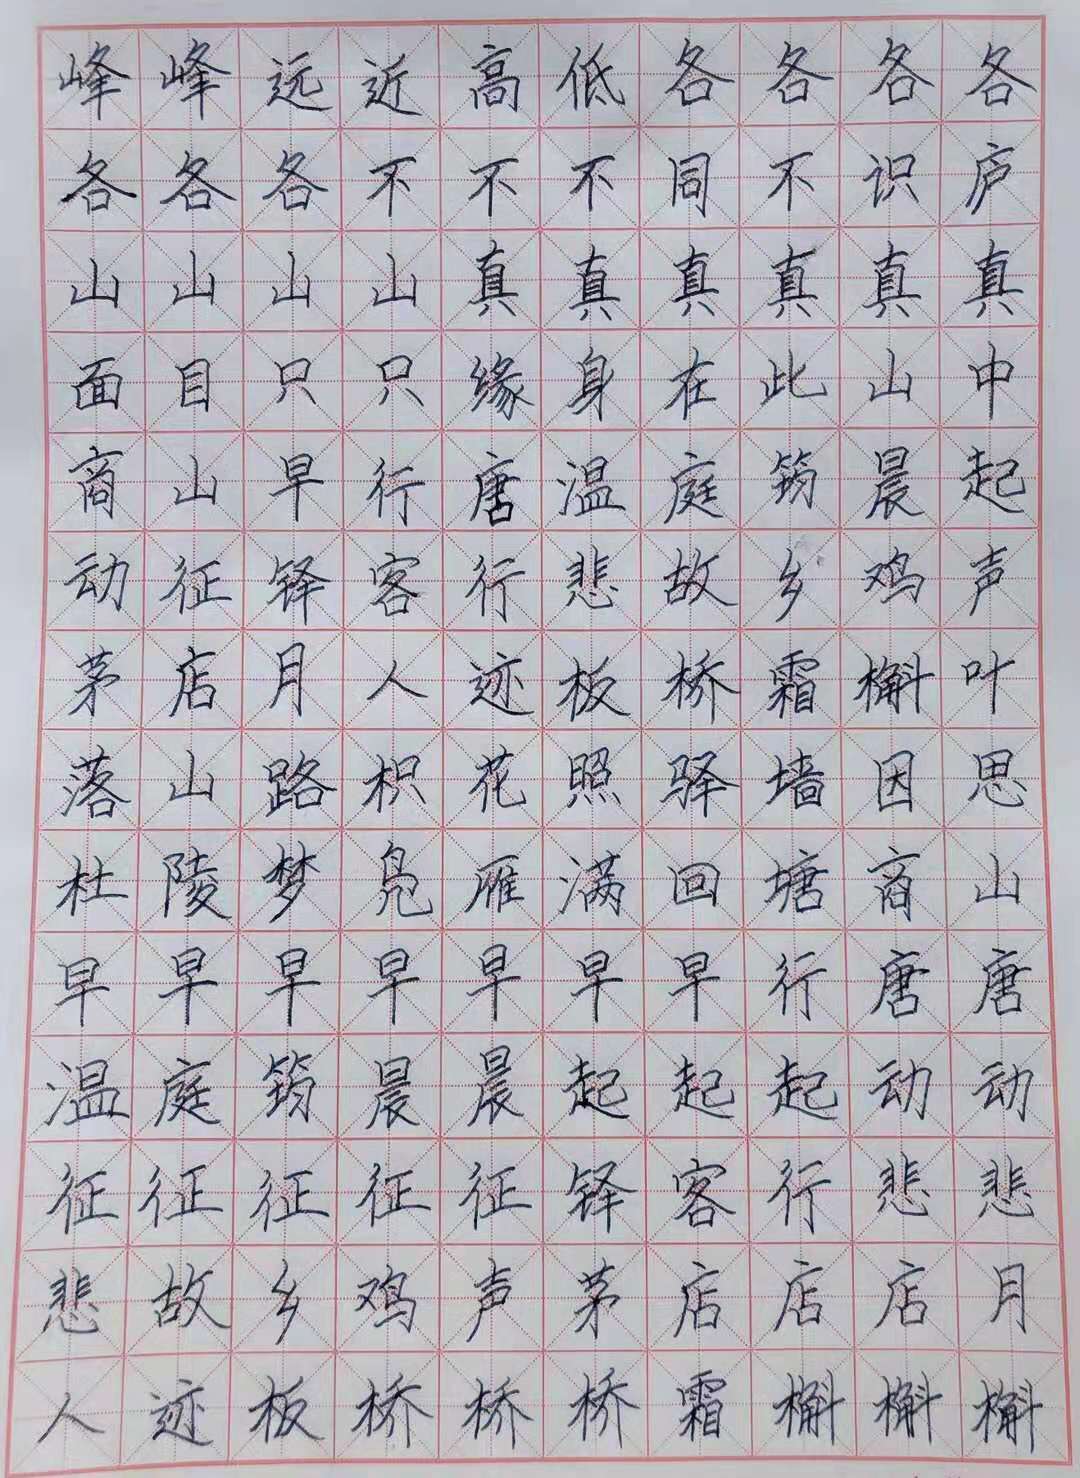 峰峰远近高低各各各各
各各各不不不同不识庐
山山山山真真真真真真
面目只只缘身在此山中
商山早行唐温庭筠晨起
动征铎客行悲故乡鸡声
茅店月人迹板桥霜槲叶
落山路枳花照驿墙因思
杜陵梦凫雁满回塘商山
早早早早早早早行唐唐
温庭筠晨晨起起起动动
征征征征征铎客行悲悲
悲故乡鸡声茅店店店月
人迹板桥桥桥霜槲槲槲